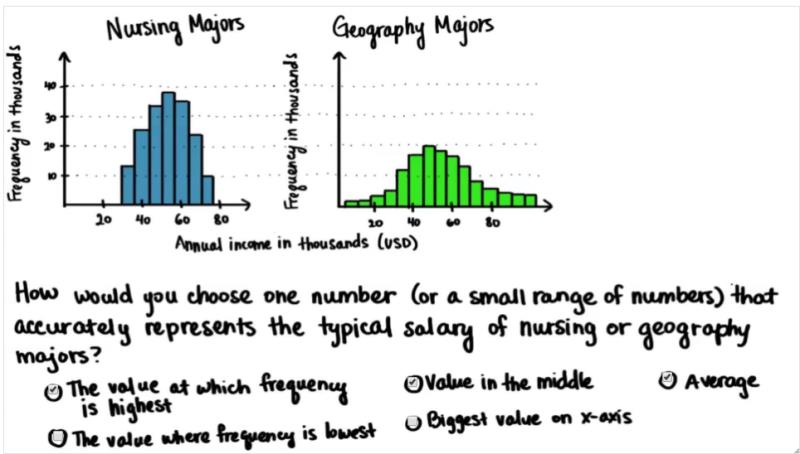 Nursing Majors
Geography Majors
Frequency in thousands
40
30
20
10
20 40 60 80
Frequency in thousands
20 40 60 80
Annual income in thousands (USD)
How would you choose one number (or a small range of numbers) that
accurately represents the typical salary of nursing or geography
majors?
The value at which frequency
is highest
Value in the middle
Average
The value where frequency is lowest
Biggest value on x-axis